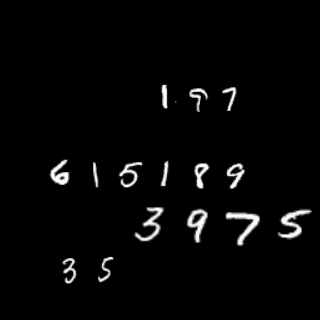 197
615189
3975
35